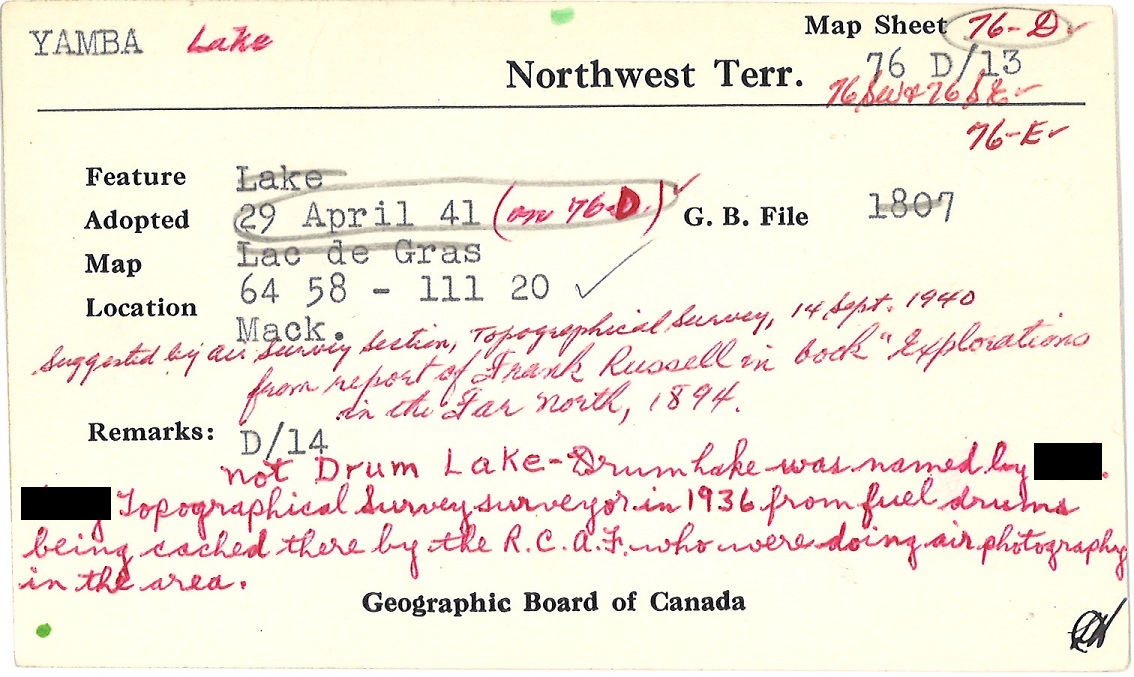 YAMBA Lake
Map Sheet 76-D
Northwest Terr. 76 D/13
76 SW & 76 SE
76-E
Feature Lake
Adopted 29 April 41 (on 76-D.) G. B. File 1807
Map Lac de Gras
Location 64 58 - 111 20
Mack.
Suggested by air Survey Section, Topographical Survey, 14 Sept. 1940
from report of Frank Russell in book "Explorations
in the Far North, 1894.
Remarks: D/14
not Drum Lake - Drum Lake was named by
Topographical Survey surveyor in 1936 from fuel drums
being cached there by the R.C.A.F. who were doing air photography
in the area.
Geographic Board of Canada